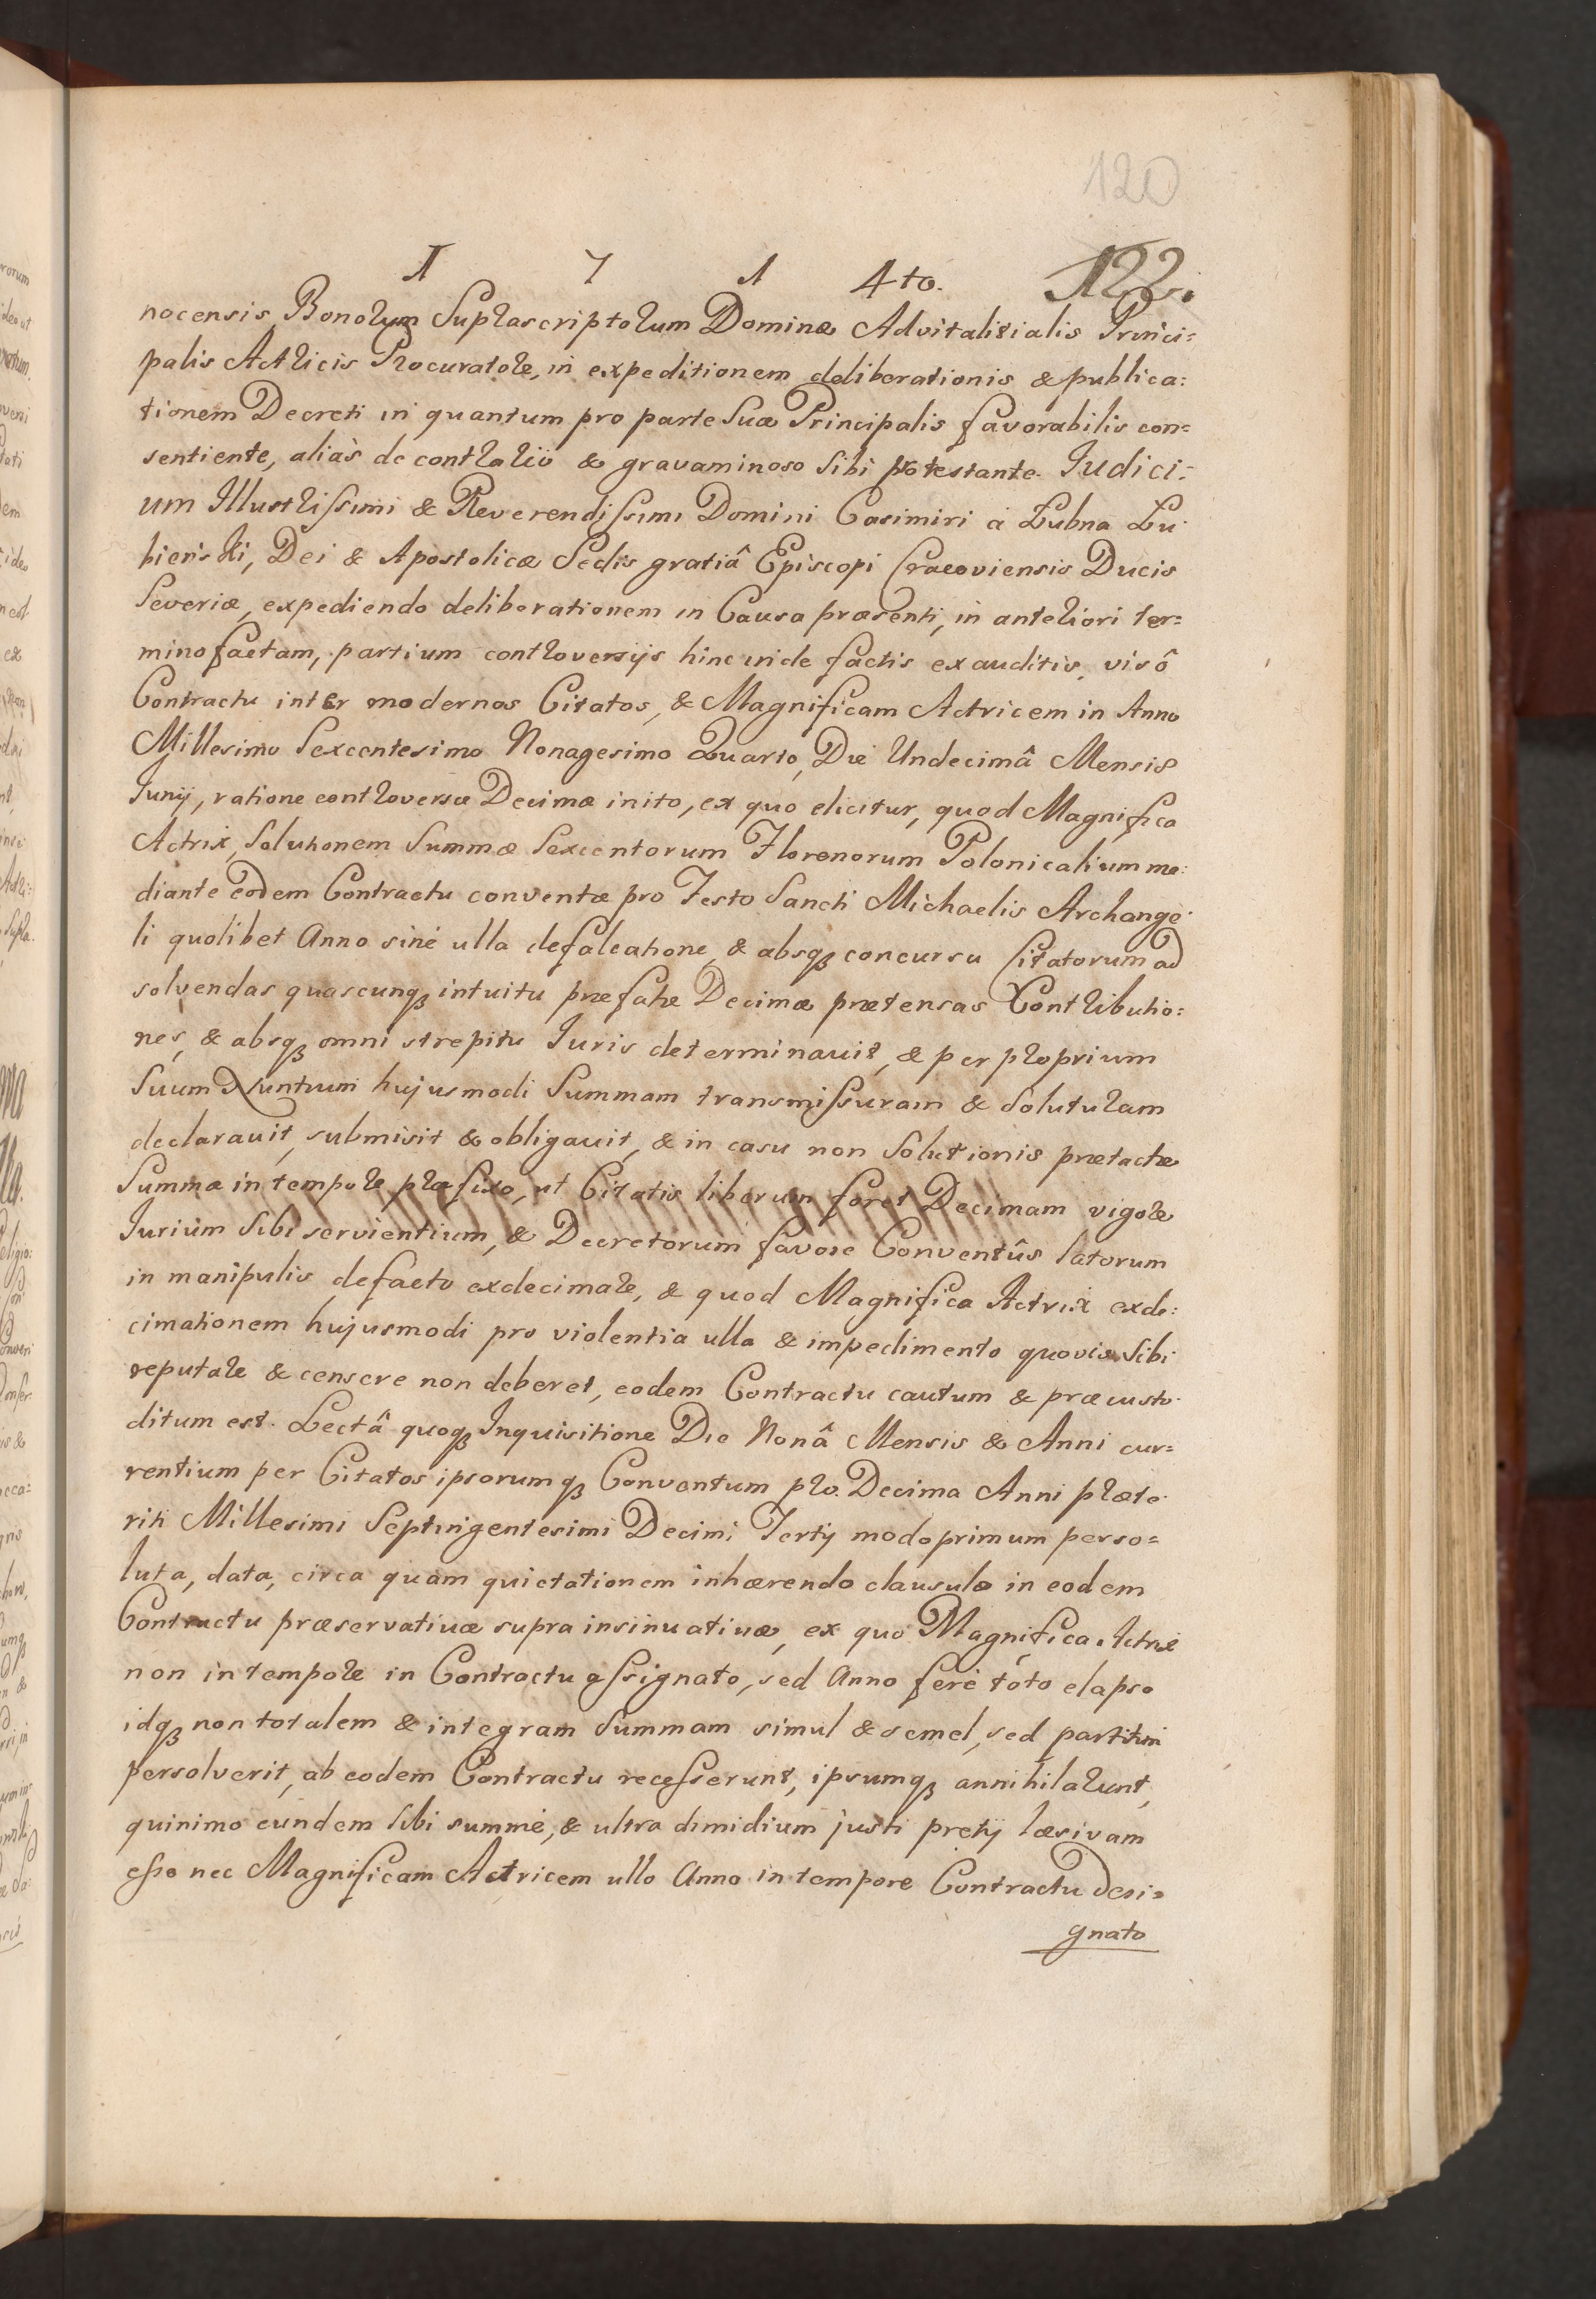 120
1 7 1 4to. 122.
nocensis Bonorum Suprascriptorum Dominæ Advitalitialis Princi=
palis Actricis Procuratore, in expeditionem deliberationis & publica=
tionem Decreti in quantum pro parte Suæ Principalis favorabilis con=
sentiente, aliàs de contrario & gravaminoso Sibi protestante. Iudici=
um Illustrissimi & Reverendissimi Domini Casimiri à Łubna Łu
bieński, Dei & Apostolicæ Sedis gratiâ Episcopi Cracoviensis Ducis
Severiæ, expediendo deliberationem in Causa præsenti, in anteriori ter=
mino factam, partium controversijs hinc inde factis exauditis, visô
Contractu inter modernos Citatos, & Magnificam Actricem in Anno
Millesimo Sexcentesimo Nonagesimo Quarto, Die Undecimâ Mensis
Iunij, ratione controversæ Decimæ inito, ex quo elicitur, quod Magnifica
Actrix, Solutionem Summæ Sexcentorum Florenorum Polonicalium me=
diante eodem Contractu conventæ pro Festo Sancti Michaelis Archange
li quolibet Anno sine ulla defalcatione, & absq3 concursu Citatorum ad
solvendas quascunq3 intuitu præfatæ Decimæ prætensas Contributio=
nes, & absq3 omni strepitu Iuris determinavit, & per proprium
Suum Nuntium hujusmodi Summam transmissuram & Soluturam
declaravit, submisit & obligavit, & in casu non Solutionis prætactæ
Summæ in tempore præfixo, ut Citatis liberum foret Decimam vigore
Iurium Sibi servientium, & Decretorum favore Conventûs latorum
in manipulis defacto exdecimare, & quod Magnifica Actrix exde=
cimationem hujusmodi pro violentia ulla & impedimento quovis Sibi
reputare & censere non deberet, eodem Contractu cautum & præcusto
ditum est. Lectâ quoq3 Inquisitione Die Nonâ Mensis & Anni cur=
rentium per Citatos ipsorumq3 Conventum pro Decima Anni præte
riti Millesimi Septingentesimi Decimi Tertij modo primum perso=
luta, data, circa quam quietationem inhærendo clausulæ in eodem
Contractu præservativæ supra insinuativæ, ex quo Magnifica Actrix
non in tempore in Contractu assignato, sed Anno ferè tôto elapso
idq3 non totalem & integram Summam simul & semel, sed partitim
persolverit, ab eodem Contractu recesserunt, ipsumq3 annihilarunt,
quinimo eundem Sibi summè, & ultra dimidium justi pretij læsivam
esse nec Magnificam Actricem ullo Anno in tempore Contractu desi=
gnato